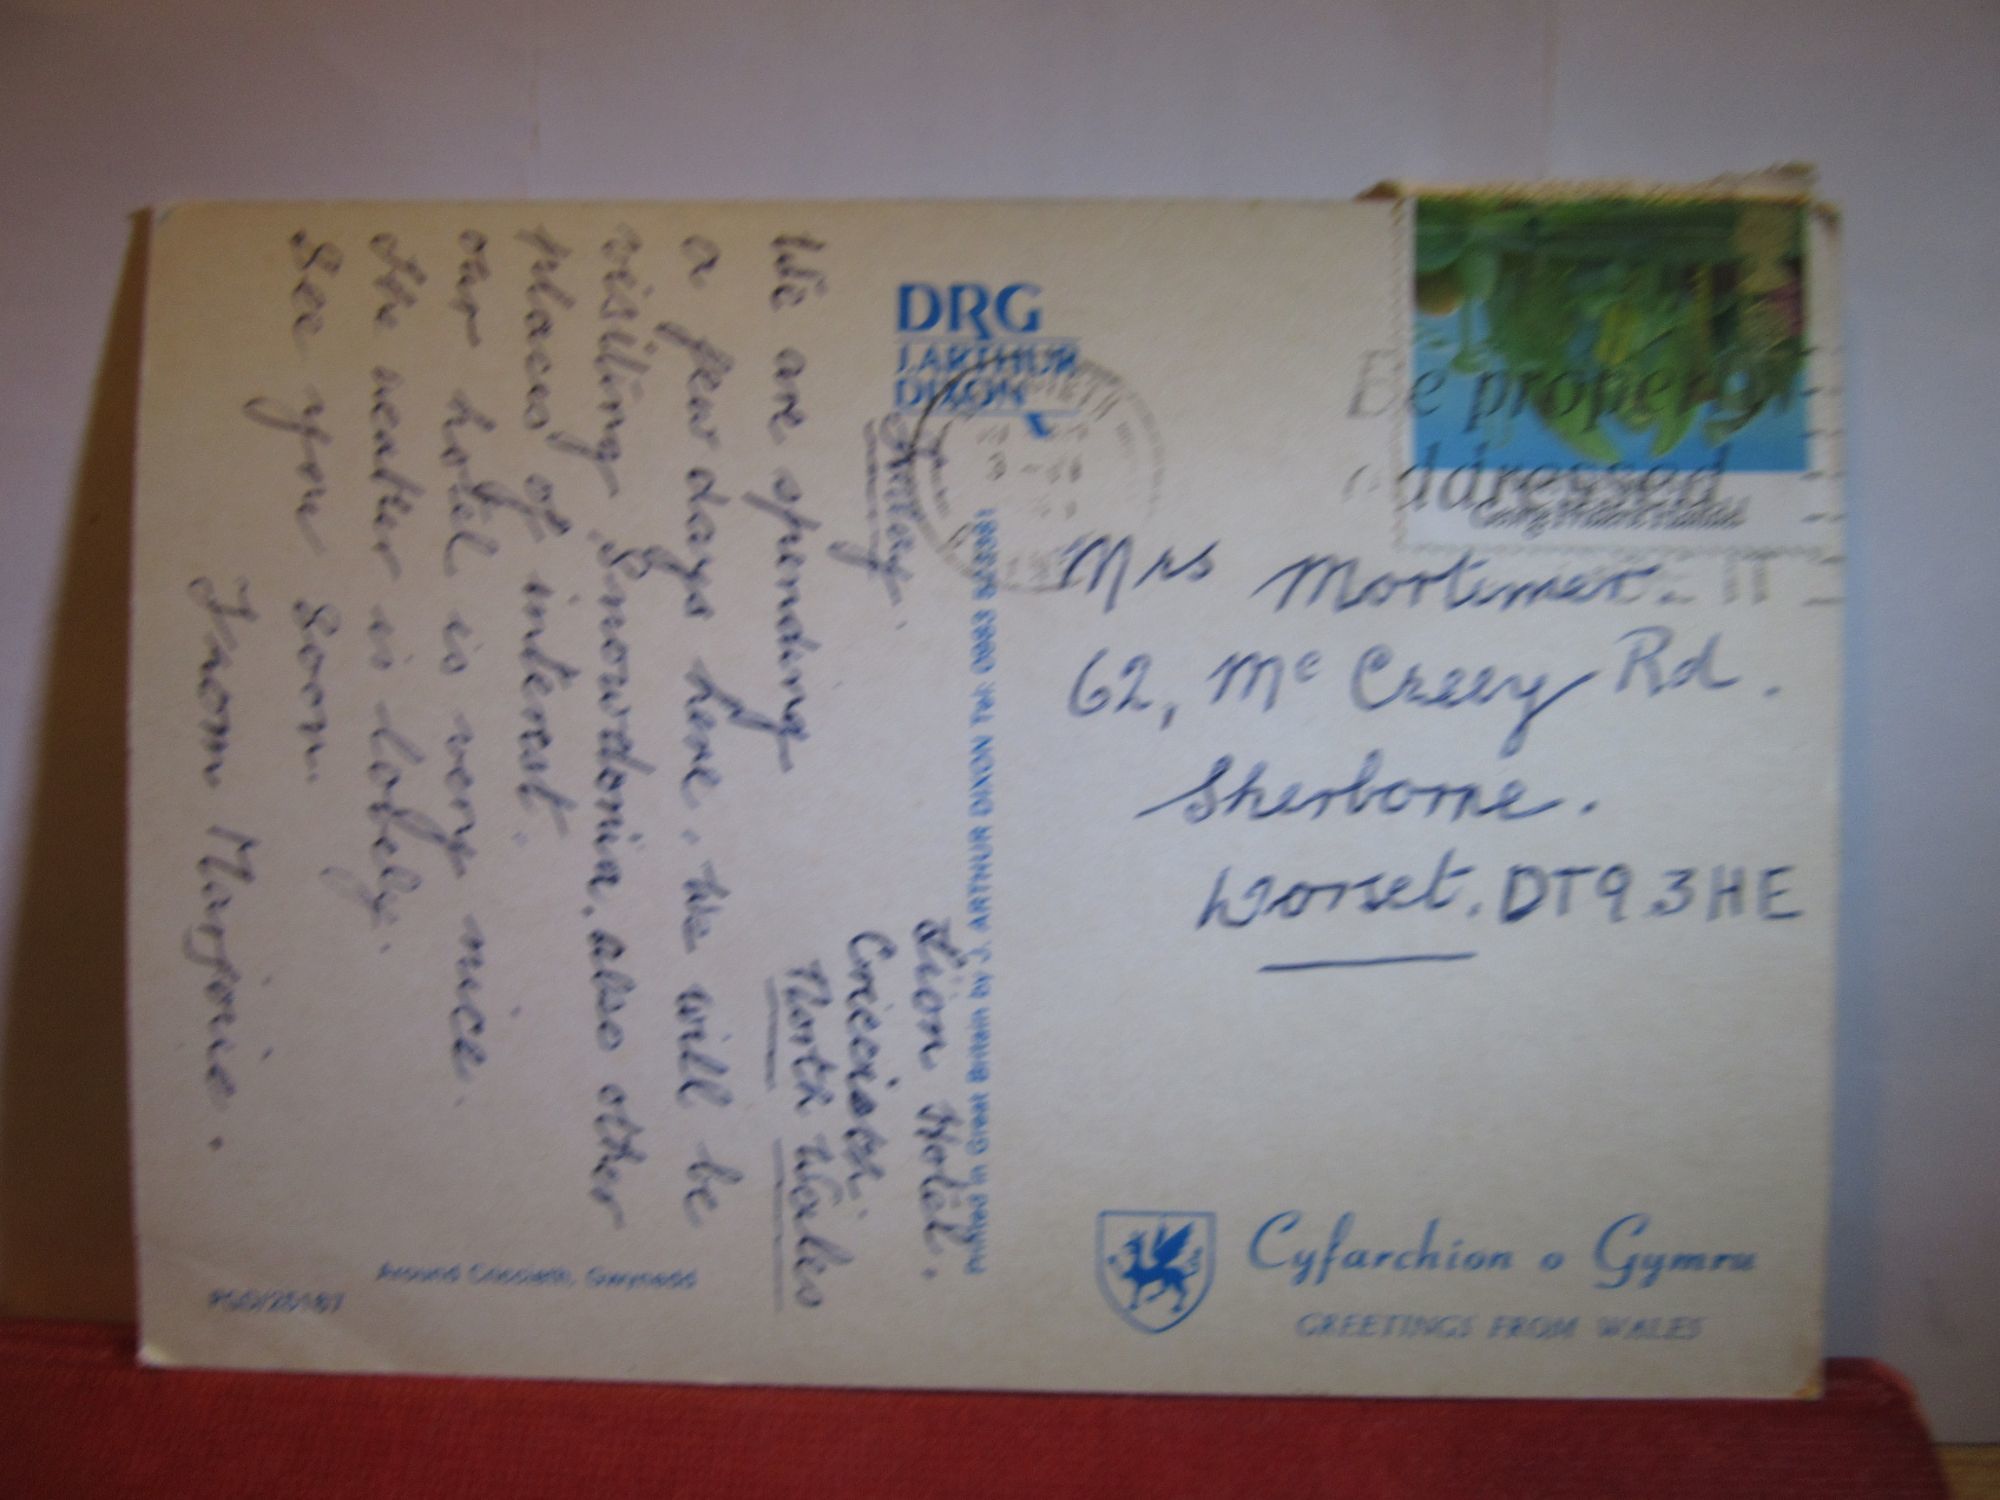 Lion Hotel.
Criccieth
North Wales
Friday.
We are spending
a few days here. We will be
visiting Snowdonia, also other
places of interest.
our hotel is very nice.
the weather is lovely.
See you Soon.
From Marjorie.
DRG
J. ARTHUR
DIXON
Printed in Great Britain by J. ARTHUR DIXON Tel: 0983 523381
Be properly
addressed
Georg Friedrich Händel
Mrs Mortimer.
62, Mc Creey Rd.
Sherborne.
Dorset. DT9 3HE
Cyfarchion o Gymru
GREETINGS FROM WALES
Around Criccieth, Gwynedd